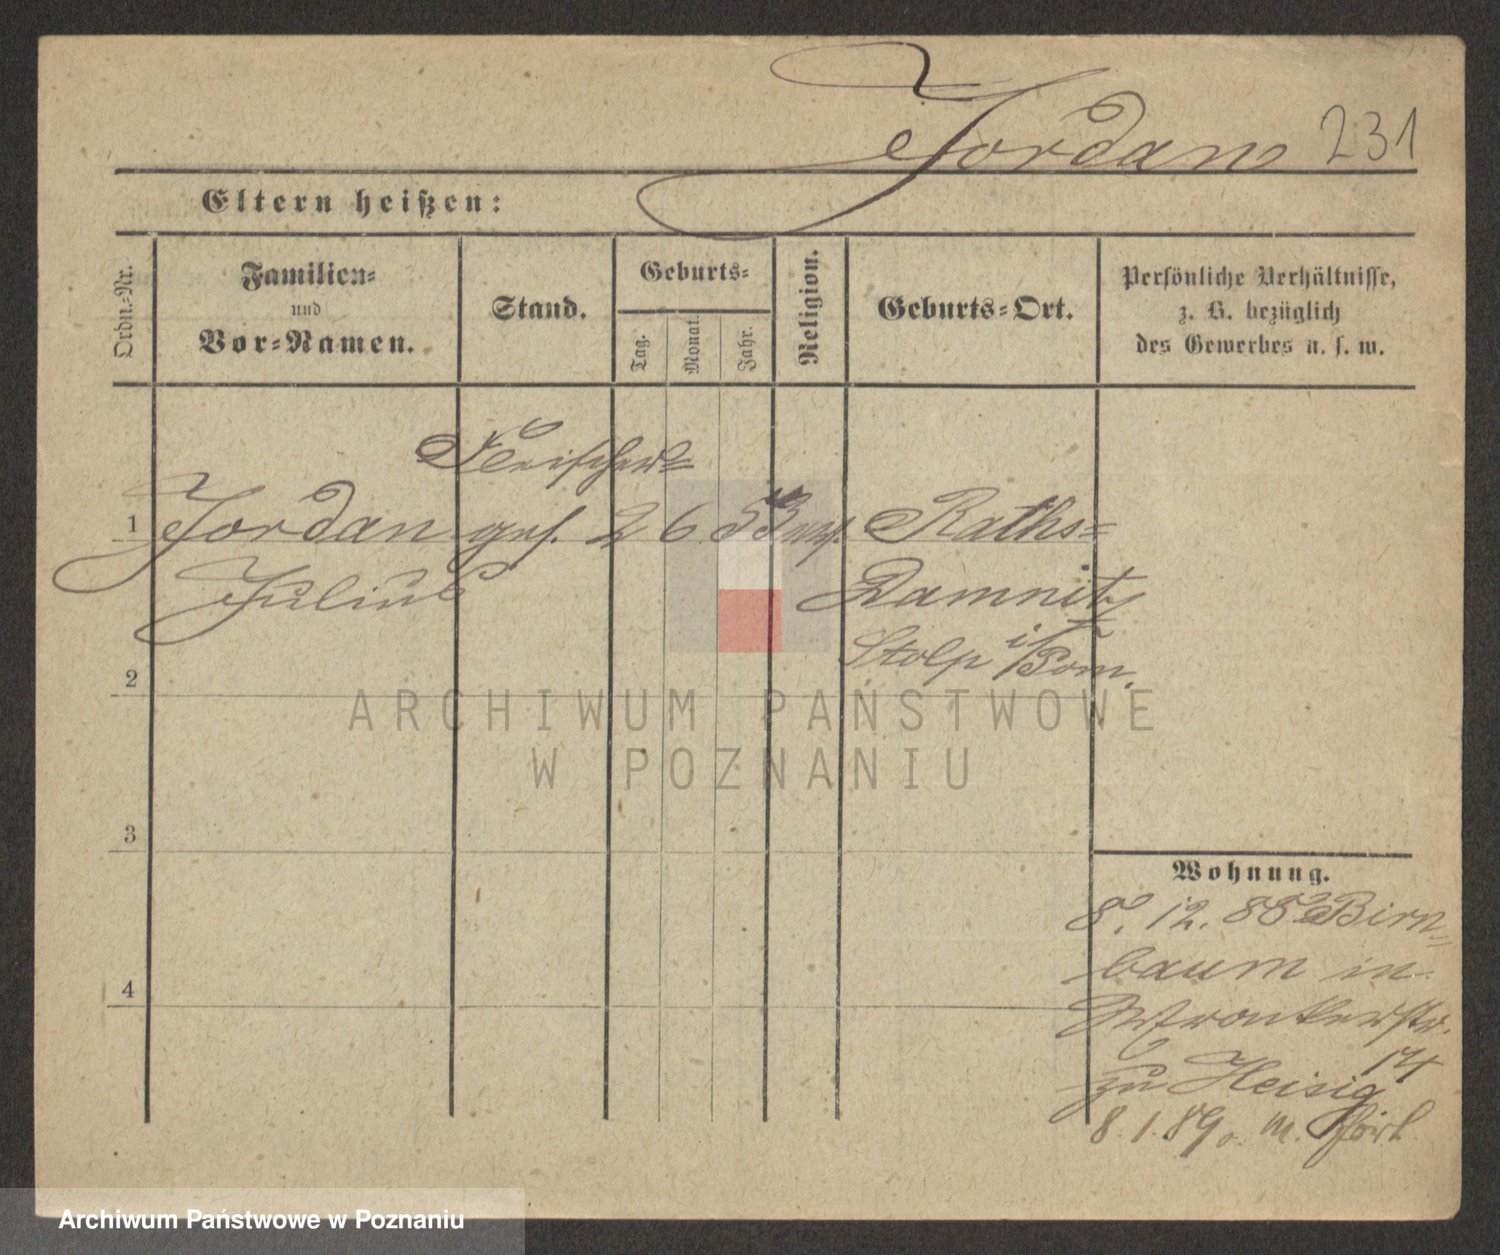 Jordan 231
Eltern heißen:
Ordn.-Nr.
Familien-
und
Vor-Namen.
Stand.
Geburts-
Tag.
Monat.
Jahr.
Religion.
Geburts-Ort.
Persönliche Verhältnisse,
z. B. bezüglich
des Gewerbes u. s. w.
Fleischer-
1 Jordan ges. 2 6 53 ev. Raths-
Julius Damnitz
Stolp i/Pom.
2
3
4
Wohnung.
8. 12. 88 Birn-
baum in
Wronkerstr.
14
zu Heisig
8. 1. 89.
ARCHIWUM PAŃSTWOWE
W POZNANIU
Archiwum Państwowe w Poznaniu